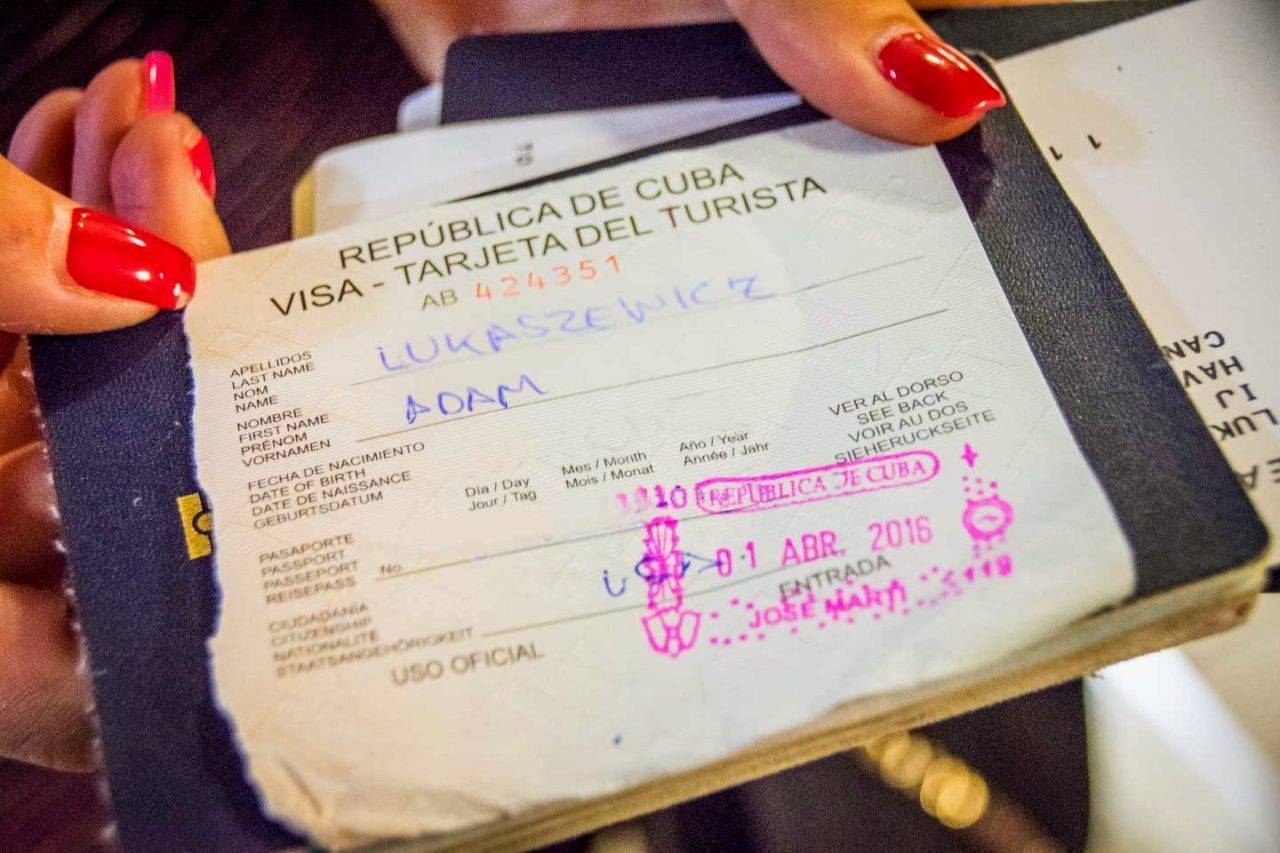 REPÚBLICA DE CUBA
VISA - TARJETA DEL TURISTA
AB 424351
APELLIDOS
LAST NAME
NOM
NAME
LUKASZEWICZ
NOMBRE
FIRST NAME
PRÉNOM
VORNAMEN
ADAM
FECHA DE NACIMIENTO
DATE OF BIRTH
DATE DE NAISSANCE
GEBURTSDATUM
Dia / Day
Jour / Tag
Mes / Month
Mois / Monat
Año / Year
Année / Jahr
VER AL DORSO
SEE BACK
VOIR AU DOS
SIEHERUCKSEITE
PASAPORTE
PASSPORT
PASSEPORT
REISEPASS
No.
REPUBLICA DE CUBA
01 ABR. 2016
ENTRADA
JOSE MARTI
CIUDADANÍA
CITIZENSHIP
NATIONALITÉ
STAATSANGEHÖRIGKEIT
USO OFICIAL
TO
1
CAN
HAV
IJ
LUK